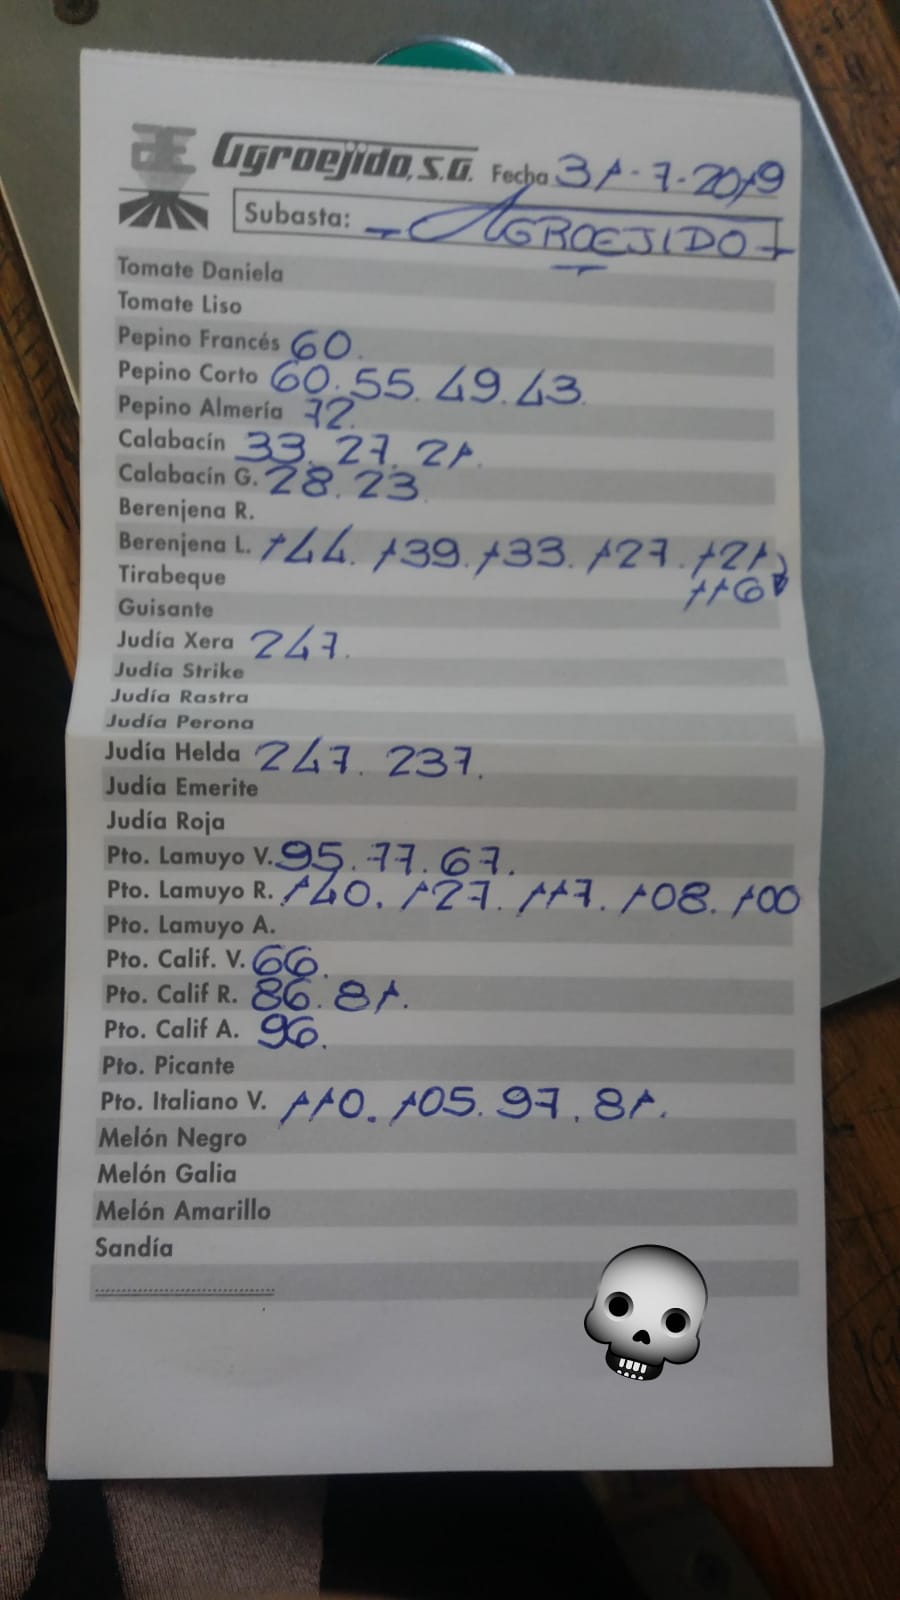 Agroejido, S.A. Fecha 31-7-2019
Subasta: - AGROEJIDO -
Tomate Daniela
Tomate Liso
Pepino Francés 60.
Pepino Corto 60. 55. 49. 43.
Pepino Almería 72.
Calabacín 33. 27. 21.
Calabacín G. 28. 23
Berenjena R.
Berenjena L. 144. 139. 133. 127. 121,
116
Tirabeque
Guisante
Judía Xera 247.
Judía Strike
Judía Rastra
Judía Perona
Judía Helda 247. 237.
Judía Emerite
Judía Roja
Pto. Lamuyo V. 95. 77. 67.
Pto. Lamuyo R. 140. 127. 117. 108. 100
Pto. Lamuyo A.
Pto. Calif. V. 66.
Pto. Calif R. 86. 81.
Pto. Calif A. 96.
Pto. Picante
Pto. Italiano V. 110. 105. 97. 81.
Melón Negro
Melón Galia
Melón Amarillo
Sandía